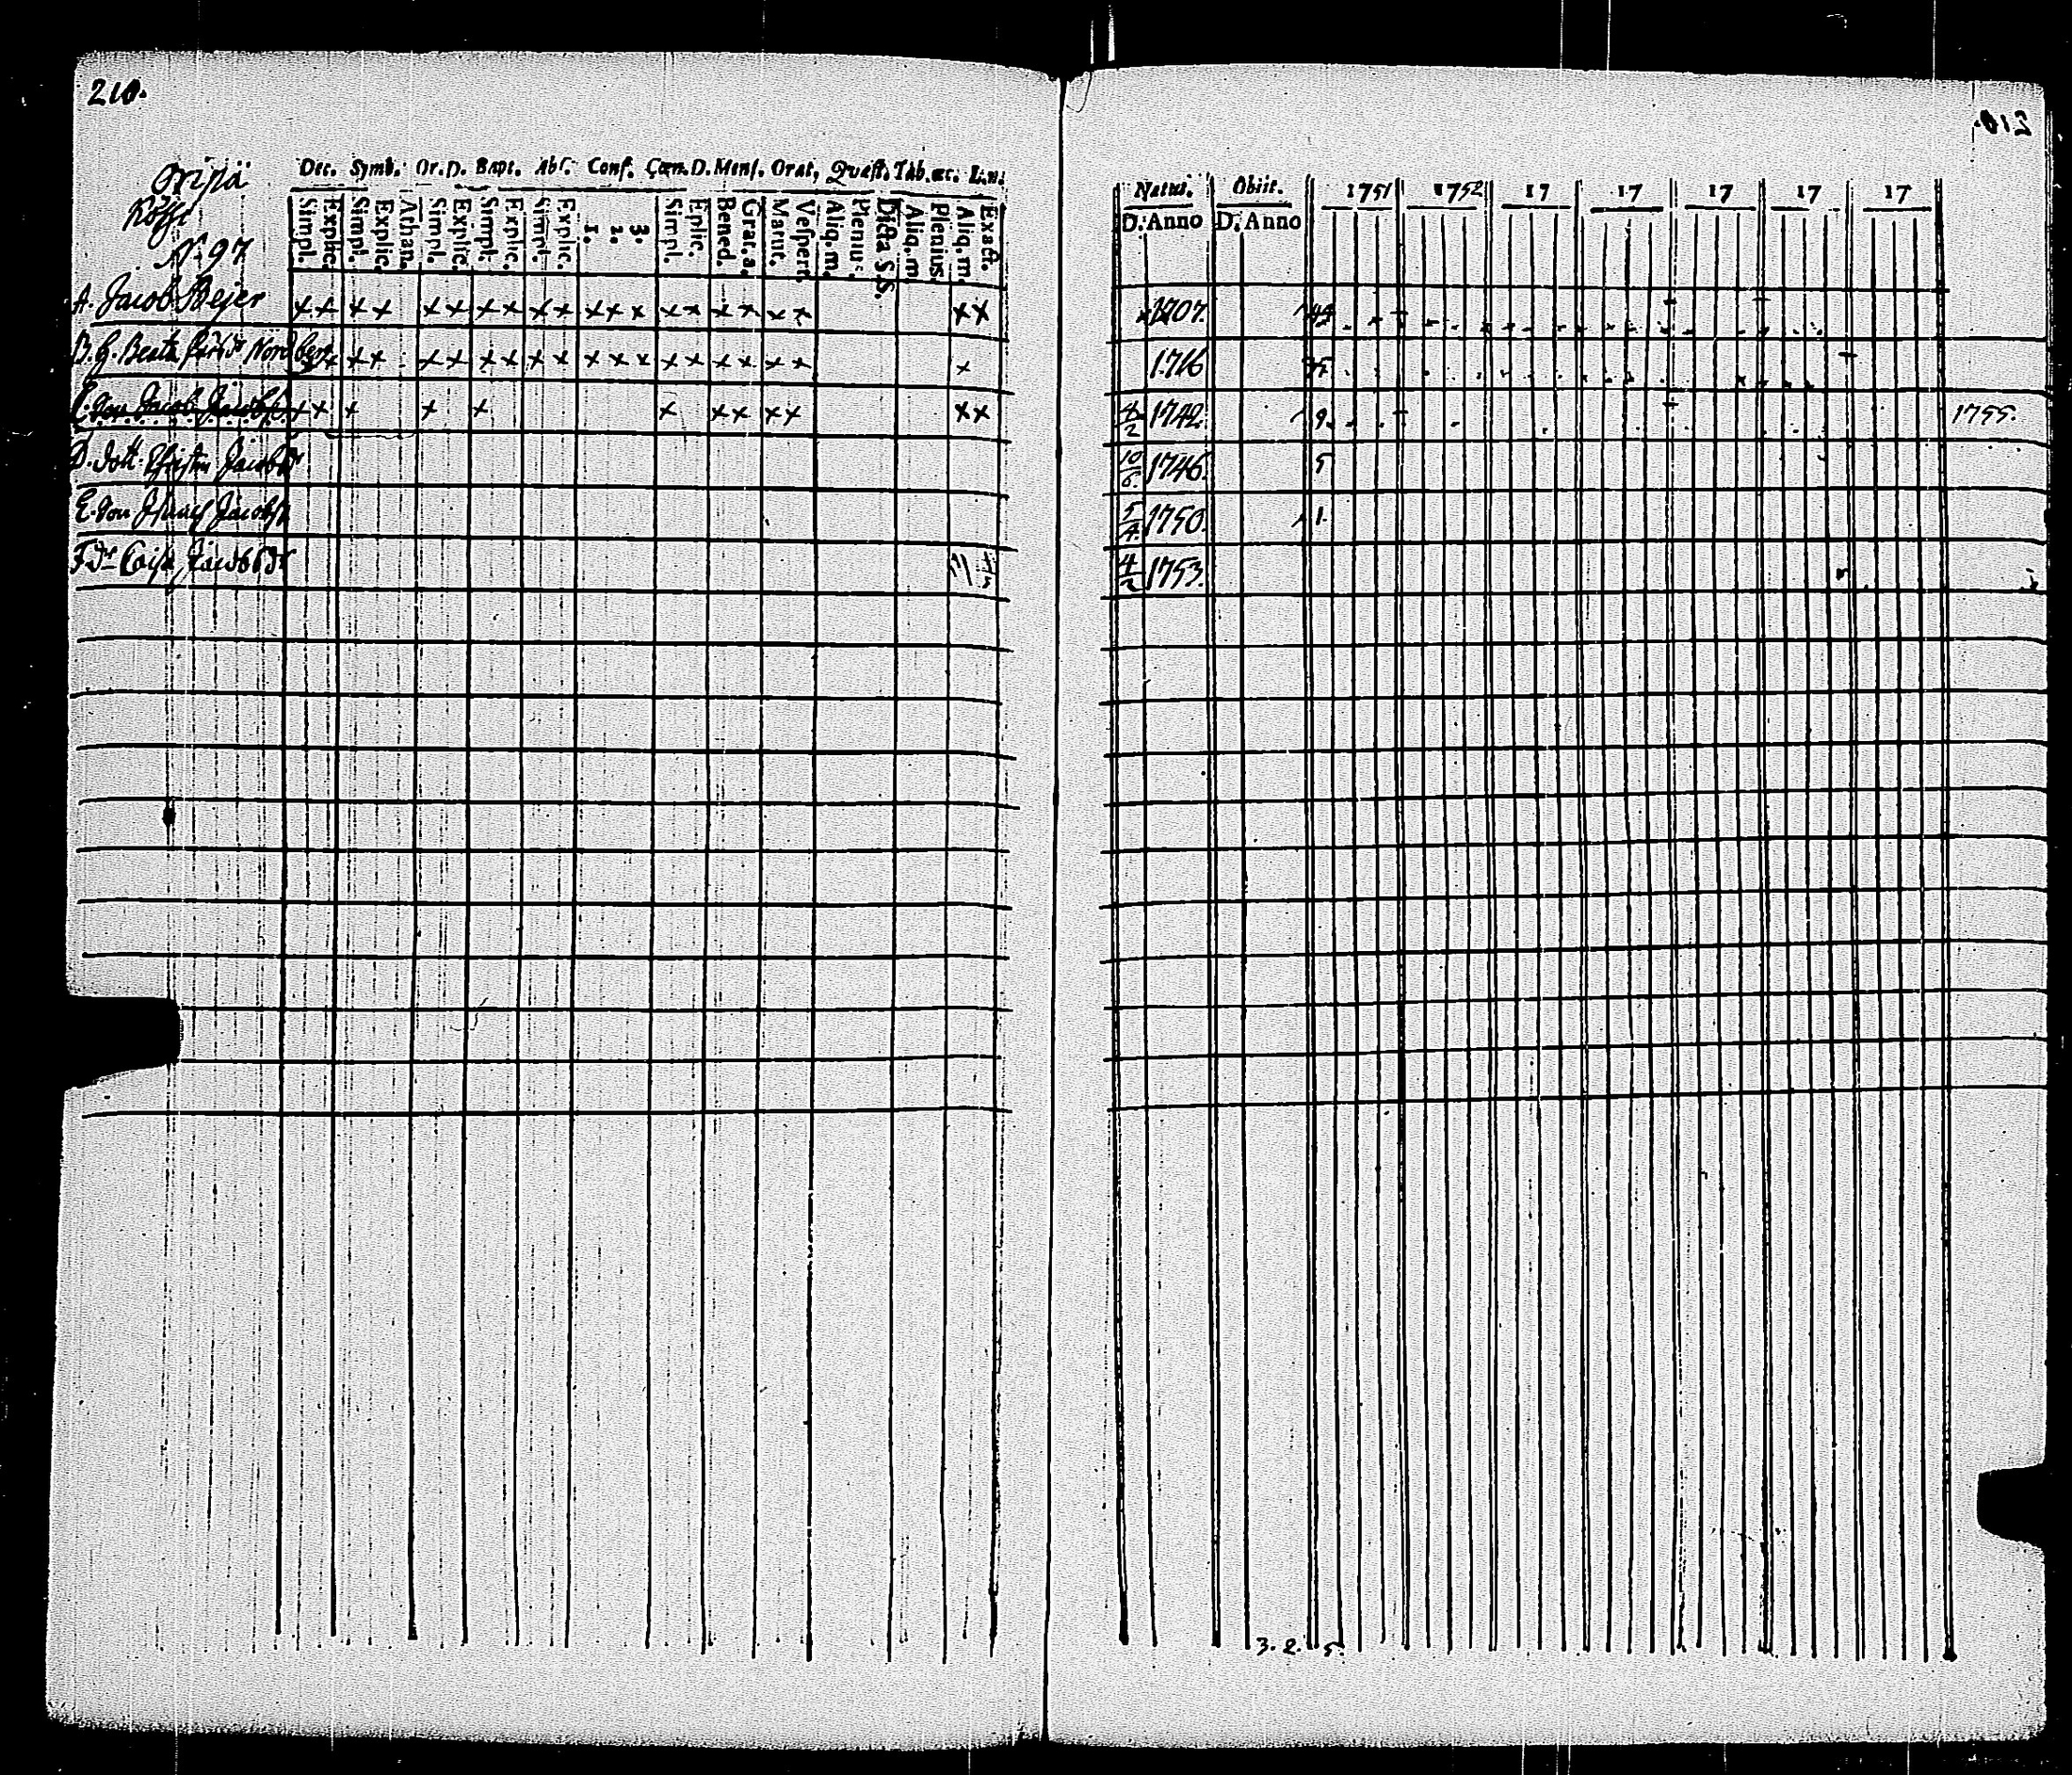 210.
210.
Oripä
N. 97
Dec. Symb. Or. D. Bapt. Abs. Conf. Cœn. D. Mens. Orat. Quæst. Tab. œc. L. n.
Simpl. Explic. Simpl. Explic. Athan. Simpl. Explic. Simpl. Explic. Simpl. Explic. 1. 2. 3. Simpl. Eplic. Bened. Grat. a. Matut. Vespert. Aliq. m. Plenius. Dicta S.S. Aliq. m. Plenius. Aliq. m. Exact.
Natus. Obiit. 1751 1752 17 17 17 17 17
D. Anno D. Anno
A. Jacob Bejer x x x x x x x x x x x x x x x x x x x x x 1707. 44
B. H. Beata Nordberg x x x x x x x x x x x x x x x x x x 1716 35
C. Son Jacob Jacobss. x x x x x x x x x x x x 8/2 1742. 9. 1755.
D. Dott. Christin Jacobsdr 10/6. 1746. 5
E. Son Jacobss. 5/4 1750. 1.
F. Dr Caisa Jacobsdr 4/2 1753.
3. 2. 5.